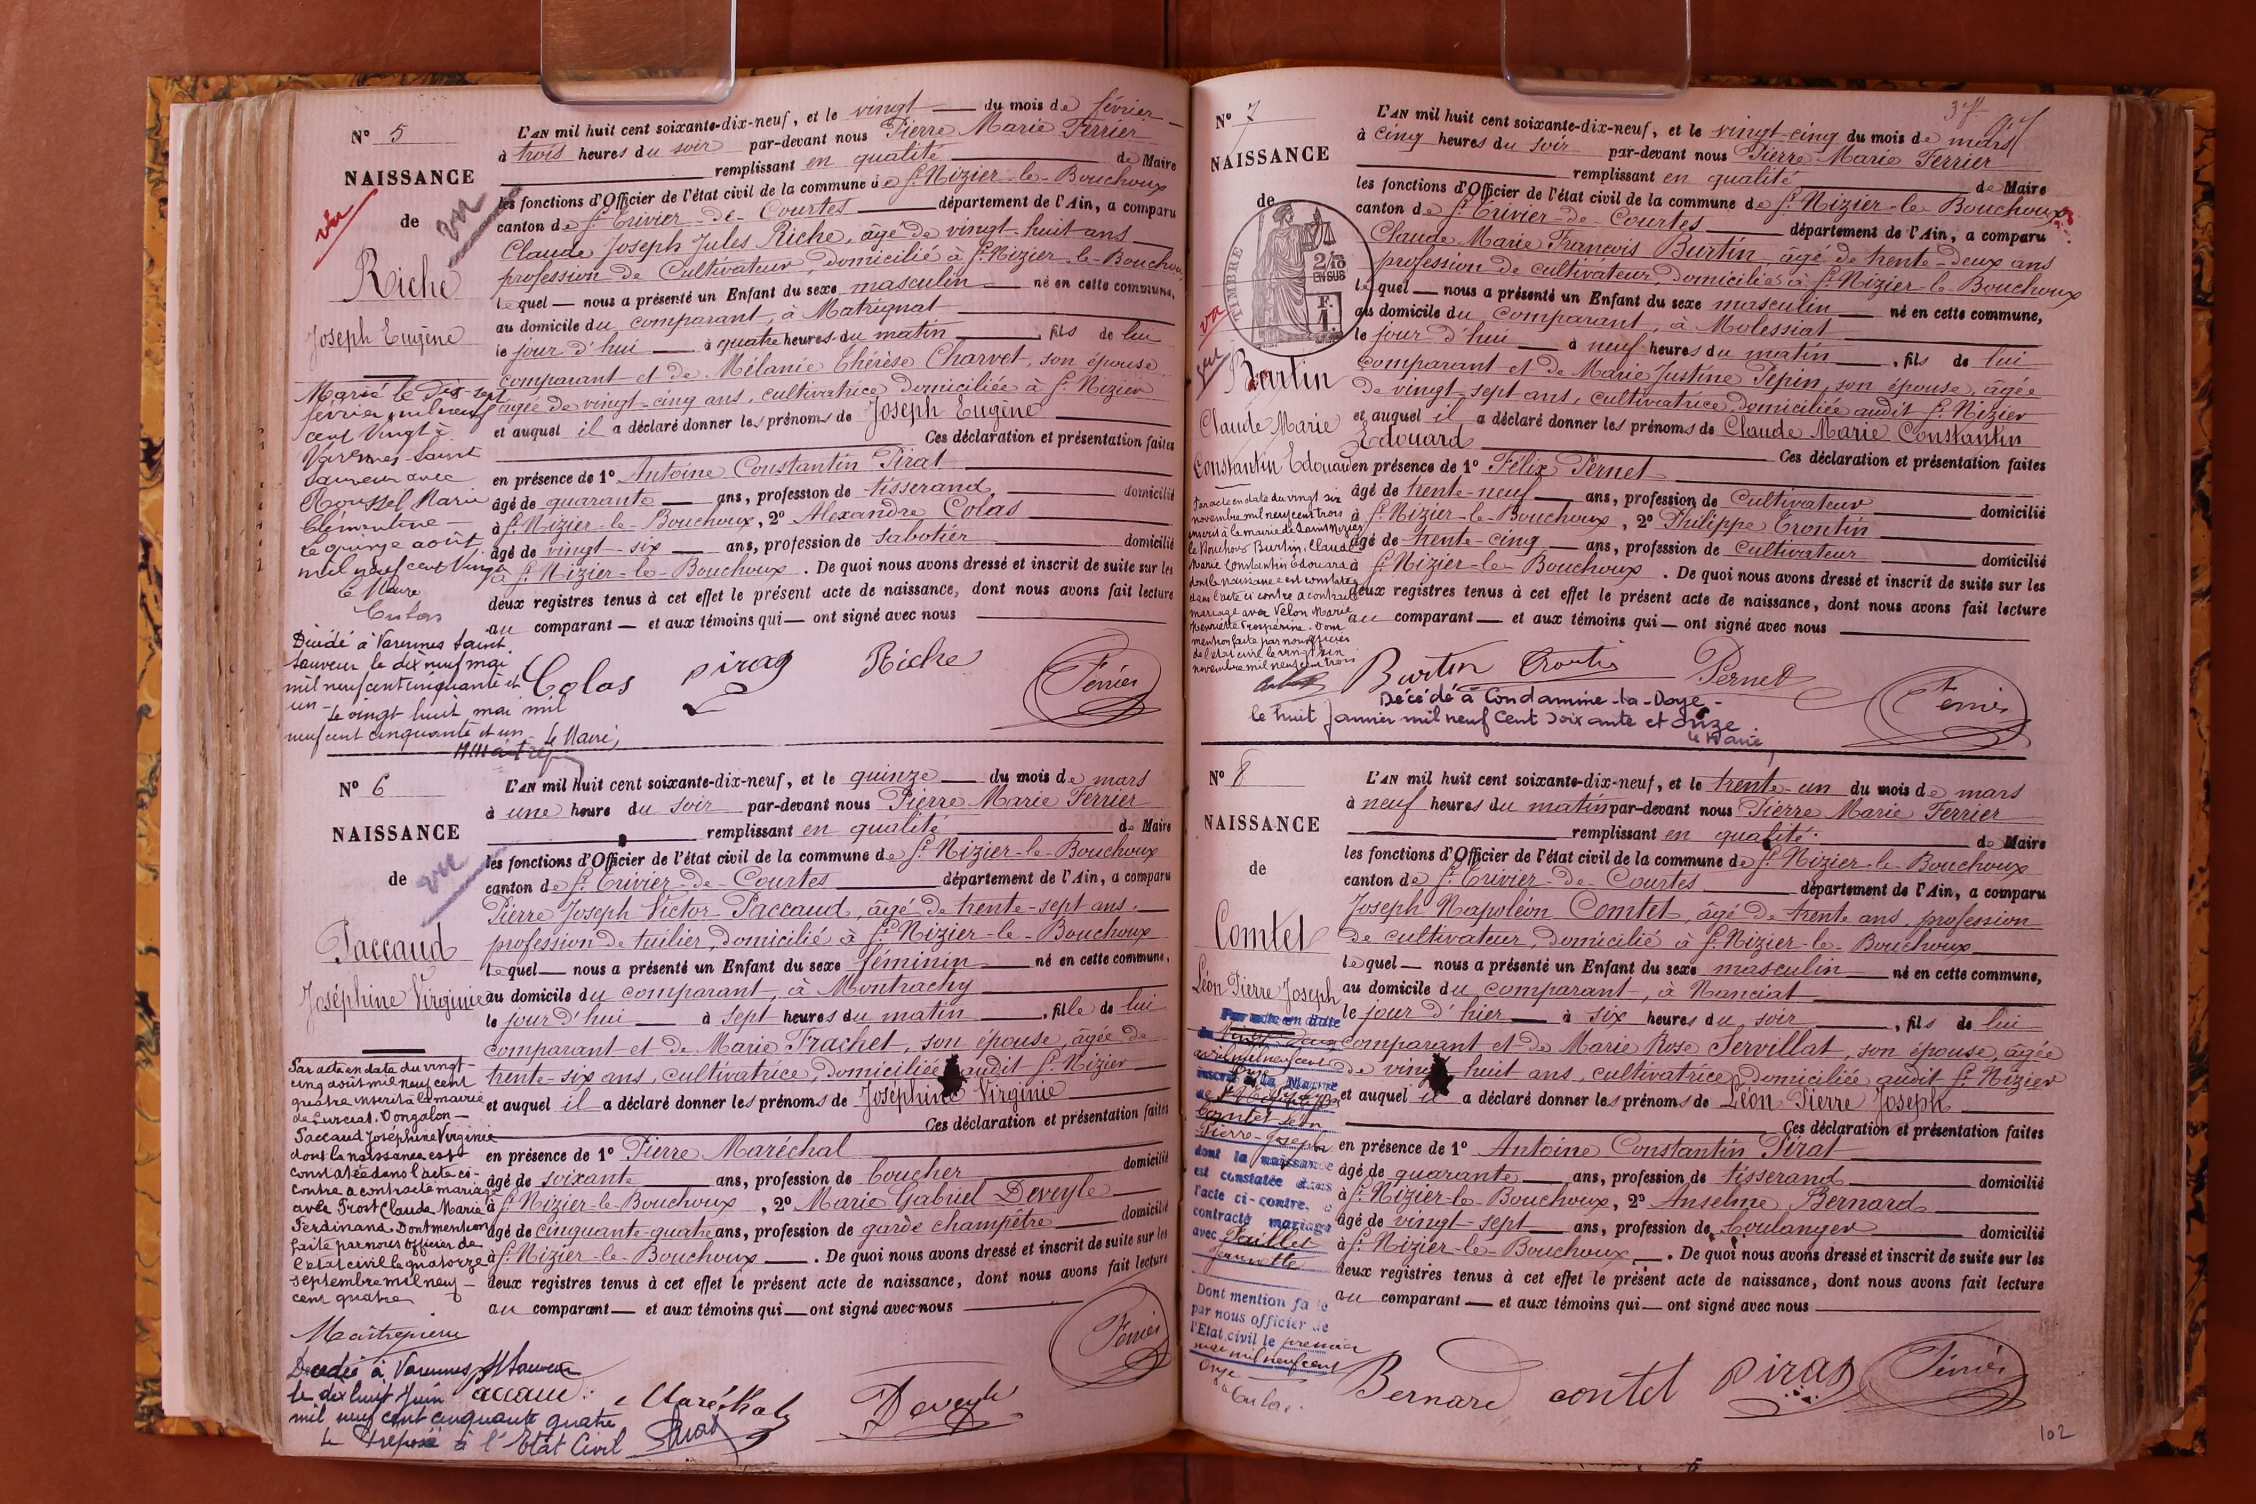 N° 5
NAISSANCE
de
vu
vu
Riche
Joseph Eugène
Marié le Dix-sept
février mil neuf
cent Vingt à
Varennes-Saint
Sauveur avec
Roussel Marie
Clémentine
Le quinze août
mil neuf cent Vingt
Le Maire
Décédé à Varennes Saint
Sauveur le dix neuf mai
mil neuf cent cinquante et
un
Le vingt huit mai mil
neuf cent cinquante et un
Le Maire,
L'AN mil huit cent soixante-dix-neuf, et le vingt du mois de février
à trois heures du soir par-devant nous Pierre Marie Ferrier
remplissant en qualité de Maire
les fonctions d'Officier de l'état civil de la commune de St Nizier-le-Bouchoux
canton de St Trivier-de-Courtes département de l'Ain, a comparu
Claude Joseph Jules Riche, âgé de vingt-huit ans
profession de Cultivateur, domicilié à St Nizier-le-Bouchoux
lequel nous a présenté un Enfant du sexe masculin né en cette commune,
au domicile du comparant, à Matrignat
le jour d'hui à quatre heures du matin, fils de lui
comparant et de Mélanie Thérèse Charvet, son épouse
âgée de vingt-cinq ans, cultivatrice domiciliée à St Nizier
et auquel il a déclaré donner les prénoms de Joseph Eugène
Ces déclaration et présentation faites
en présence de 1° Antoine Constantin Pirat
âgé de quarante ans, profession de tisserand, domicilié
à St Nizier-le-Bouchoux, 2° Alexandre Colas
âgé de vingt-six ans, profession de sabotier domicilié
à St Nizier-le-Bouchoux. De quoi nous avons dressé et inscrit de suite sur les
deux registres tenus à cet effet le présent acte de naissance, dont nous avons fait lecture
au comparant et aux témoins qui ont signé avec nous
Colas pirat Riche Ferrier
N° 6
NAISSANCE
de
vu
Paccaud
Joséphine Virginie
Par acte en date du vingt-
cinq août mil neuf cent
quatre inscrit à la mairie
de Curciat-Dongalon
Paccaud Joséphine Virginie
dont la naissance est
constatée dans l'acte ci-
contre a contracté mariage
avec Prost Claude Marie
Ferdinand. Dont mention
faite par nous officier de
l'état civil le quatorze
septembre mil neuf
cent quatre
Maitrepierre
Décédée à Varennes St Sauveur
le dix huit Juin
mil neuf cent cinquante quatre
Le préposé à l'Etat Civil
L'AN mil huit cent soixante-dix-neuf, et le quinze du mois de mars
à une heure du soir par-devant nous Pierre Marie Ferrier
remplissant en qualité de Maire
les fonctions d'Officier de l'état civil de la commune de St Nizier-le-Bouchoux
canton de St Trivier-de-Courtes département de l'Ain, a comparu
Pierre Joseph Victor Paccaud, âgé de trente-sept ans,
profession de tuilier, domicilié à St Nizier-le-Bouchoux
lequel nous a présenté un Enfant du sexe féminin né en cette commune,
au domicile du comparant, à Montrachy
le jour d'hui à sept heures du matin, fille de lui
comparant et de Marie Trachet, son épouse, âgée de
trente-six ans, cultivatrice, domiciliée audit St Nizier
et auquel il a déclaré donner les prénoms de Joséphine Virginie
Ces déclaration et présentation faites
en présence de 1° Pierre Maréchal
âgé de soixante ans, profession de boucher domicilié
à St Nizier-le-Bouchoux, 2° Marie Gabriel Deveyle
âgé de cinquante-quatre ans, profession de garde champêtre domicilié
à St Nizier-le-Bouchoux. De quoi nous avons dressé et inscrit de suite sur les
deux registres tenus à cet effet le présent acte de naissance, dont nous avons fait lecture
au comparant et aux témoins qui ont signé avec nous
Ferrier
Paccaud Maréchal Deveyle
N° 7
NAISSANCE
de
TIMBRE
2/10
EN SUS
F.
1.
vu
Burtin
Claude Marie
Constantin Edouard
Par acte en date du vingt six
novembre mil neuf cent trois
inscrit à la mairie de Saint Nizier
le Bouchoux Burtin Claude
Marie Constantin Edouard
dont la naissance est constatée
dans l'acte ci contre a contracté
mariage avec Velon Marie
Henriette Prospérine. Dont
mention faite par nous officier
de l'état civil le vingt six
novembre mil neuf cent trois
L'AN mil huit cent soixante-dix-neuf, et le vingt-cinq du mois de mars
à cinq heures du soir par-devant nous Pierre Marie Ferrier
remplissant en qualité de Maire
les fonctions d'Officier de l'état civil de la commune de St Nizier-le-Bouchoux
canton de St Trivier-de-Courtes département de l'Ain, a comparu
Claude Marie François Burtin âgé de trente-deux ans
profession de cultivateur, domicilié à St Nizier-le-Bouchoux
lequel nous a présenté un Enfant du sexe masculin né en cette commune,
au domicile du comparant, à Molessiat
le jour d'hui à neuf heures du matin, fils de lui
comparant et de Marie Justine Pepin, son épouse, âgée
de vingt-sept ans, cultivatrice, domiciliée audit St Nizier
et auquel il a déclaré donner les prénoms de Claude Marie Constantin
Edouard Ces déclaration et présentation faites
en présence de 1° Félix Pernet
âgé de trente-neuf ans, profession de Cultivateur domicilié
à St Nizier-le-Bouchoux, 2° Philippe Trontin
âgé de trente-cinq ans, profession de cultivateur domicilié
à St Nizier-le-Bouchoux. De quoi nous avons dressé et inscrit de suite sur les
deux registres tenus à cet effet le présent acte de naissance, dont nous avons fait lecture
au comparant et aux témoins qui ont signé avec nous
Burtin Trontin Pernet Ferrier
Décédé à Condamine-la-Doye
le huit Janvier mil neuf cent soixante et onze
Le Maire,
N° 8
NAISSANCE
de
Comtet
Léon Pierre Joseph
Par acte en date
du vingt deux
avril mil neuf cent
onze
inscrit à la Mairie
de St Nizier
Comtet Léon
Pierre-Joseph
dont la naissance
est constatée dans
l'acte ci-contre, a
contracté mariage
avec Paillet
Jeannette
Dont mention faite
par nous officier de
l'Etat civil le premier
mai mil neuf cent
onze
L'AN mil huit cent soixante-dix-neuf, et le trente-un du mois de mars
à neuf heures du matin par-devant nous Pierre Marie Ferrier
remplissant en qualité de Maire
les fonctions d'Officier de l'état civil de la commune de St Nizier-le-Bouchoux
canton de St Trivier-de-Courtes département de l'Ain, a comparu
Joseph Napoléon Comtet, âgé de trente ans, profession
de cultivateur, domicilié à St Nizier-le-Bouchoux
lequel nous a présenté un Enfant du sexe masculin né en cette commune,
au domicile du comparant, à Nanciat
le jour d'hier à six heures du soir, fils de lui
comparant et de Marie Rose Servillat, son épouse, âgée
de vingt huit ans, cultivatrice, domiciliée audit St Nizier
et auquel il a déclaré donner les prénoms de Léon Pierre Joseph
Ces déclaration et présentation faites
en présence de 1° Antoine Constantin Pirat
âgé de quarante ans, profession de tisserand domicilié
à St Nizier-le-Bouchoux, 2° Anselme Bernard
âgé de vingt-sept ans, profession de boulanger domicilié
à St Nizier-le-Bouchoux. De quoi nous avons dressé et inscrit de suite sur les
deux registres tenus à cet effet le présent acte de naissance, dont nous avons fait lecture
au comparant et aux témoins qui ont signé avec nous
Bernard contet piras Ferrier
102